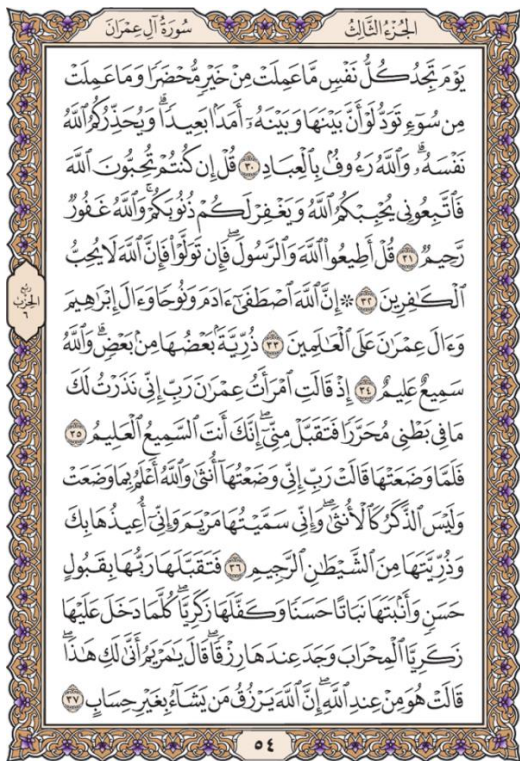 الجُزْءُ الثَّالِثُ
سُورَةُ آلِ عِمْرَانَ
يَوْمَ تَجِدُ كُلُّ نَفْسٍ مَّا عَمِلَتْ مِنْ خَيْرٍ مُّحْضَرًا وَمَا عَمِلَتْ
مِن سُوٓءٍ تَوَدُّ لَوْ أَنَّ بَيْنَهَا وَبَيْنَهُۥٓ أَمَدَۢا بَعِيدًاۗ وَيُحَذِّرُكُمُ ٱللَّهُ
نَفْسَهُۥۗ وَٱللَّهُ رَءُوفُۢ بِٱلْعِبَادِ ٣٠ قُلْ إِن كُنتُمْ تُحِبُّونَ ٱللَّهَ
فَٱتَّبِعُونِى يُحْبِبْكُمُ ٱللَّهُ وَيَغْفِرْ لَكُمْ ذُنُوبَكُمْۗ وَٱللَّهُ غَفُورٌ
رَّحِيمٌ ٣١ قُلْ أَطِيعُوا۟ ٱللَّهَ وَٱلرَّسُولَۖ فَإِن تَوَلَّوْا۟ فَإِنَّ ٱللَّهَ لَا يُحِبُّ
ٱلْكَٰفِرِينَ ٣٢ ۞ إِنَّ ٱللَّهَ ٱصْطَفَىٰٓ ءَادَمَ وَنُوحًا وَءَالَ إِبْرَٰهِيمَ
وَءَالَ عِمْرَٰنَ عَلَى ٱلْعَٰلَمِينَ ٣٣ ذُرِّيَّةَۢ بَعْضُهَا مِنۢ بَعْضٍۗ وَٱللَّهُ
سَمِيعٌ عَلِيمٌ ٣٤ إِذْ قَالَتِ ٱمْرَأَتُ عِمْرَٰنَ رَبِّ إِنِّى نَذَرْتُ لَكَ
مَا فِى بَطْنِى مُحَرَّرًا فَتَقَبَّلْ مِنِّىٓۖ إِنَّكَ أَنتَ ٱلسَّمِيعُ ٱلْعَلِيمُ ٣٥
فَلَمَّا وَضَعَتْهَا قَالَتْ رَبِّ إِنِّى وَضَعْتُهَآ أُنثَىٰ وَٱللَّهُ أَعْلَمُ بِمَا وَضَعَتْ
وَلَيْسَ ٱلذَّكَرُ كَٱلْأُنثَىٰۖ وَإِنِّى سَمَّيْتُهَا مَرْيَمَ وَإِنِّىٓ أُعِيذُهَا بِكَ
وَذُرِّيَّتَهَا مِنَ ٱلشَّيْطَٰنِ ٱلرَّجِيمِ ٣٦ فَتَقَبَّلَهَا رَبُّهَا بِقَبُولٍ
حَسَنٍ وَأَنۢبَتَهَا نَبَاتًا حَسَنًا وَكَفَّلَهَا زَكَرِيَّاۖ كُلَّمَا دَخَلَ عَلَيْهَا
زَكَرِيَّا ٱلْمِحْرَابَ وَجَدَ عِندَهَا رِزْقًاۖ قَالَ يَٰمَرْيَمُ أَنَّىٰ لَكِ هَٰذَاۖ
قَالَتْ هُوَ مِنْ عِندِ ٱللَّهِۖ إِنَّ ٱللَّهَ يَرْزُقُ مَن يَشَآءُ بِغَيْرِ حِسَابٍ ٣٧
ربع
الحزب
٦
٥٤